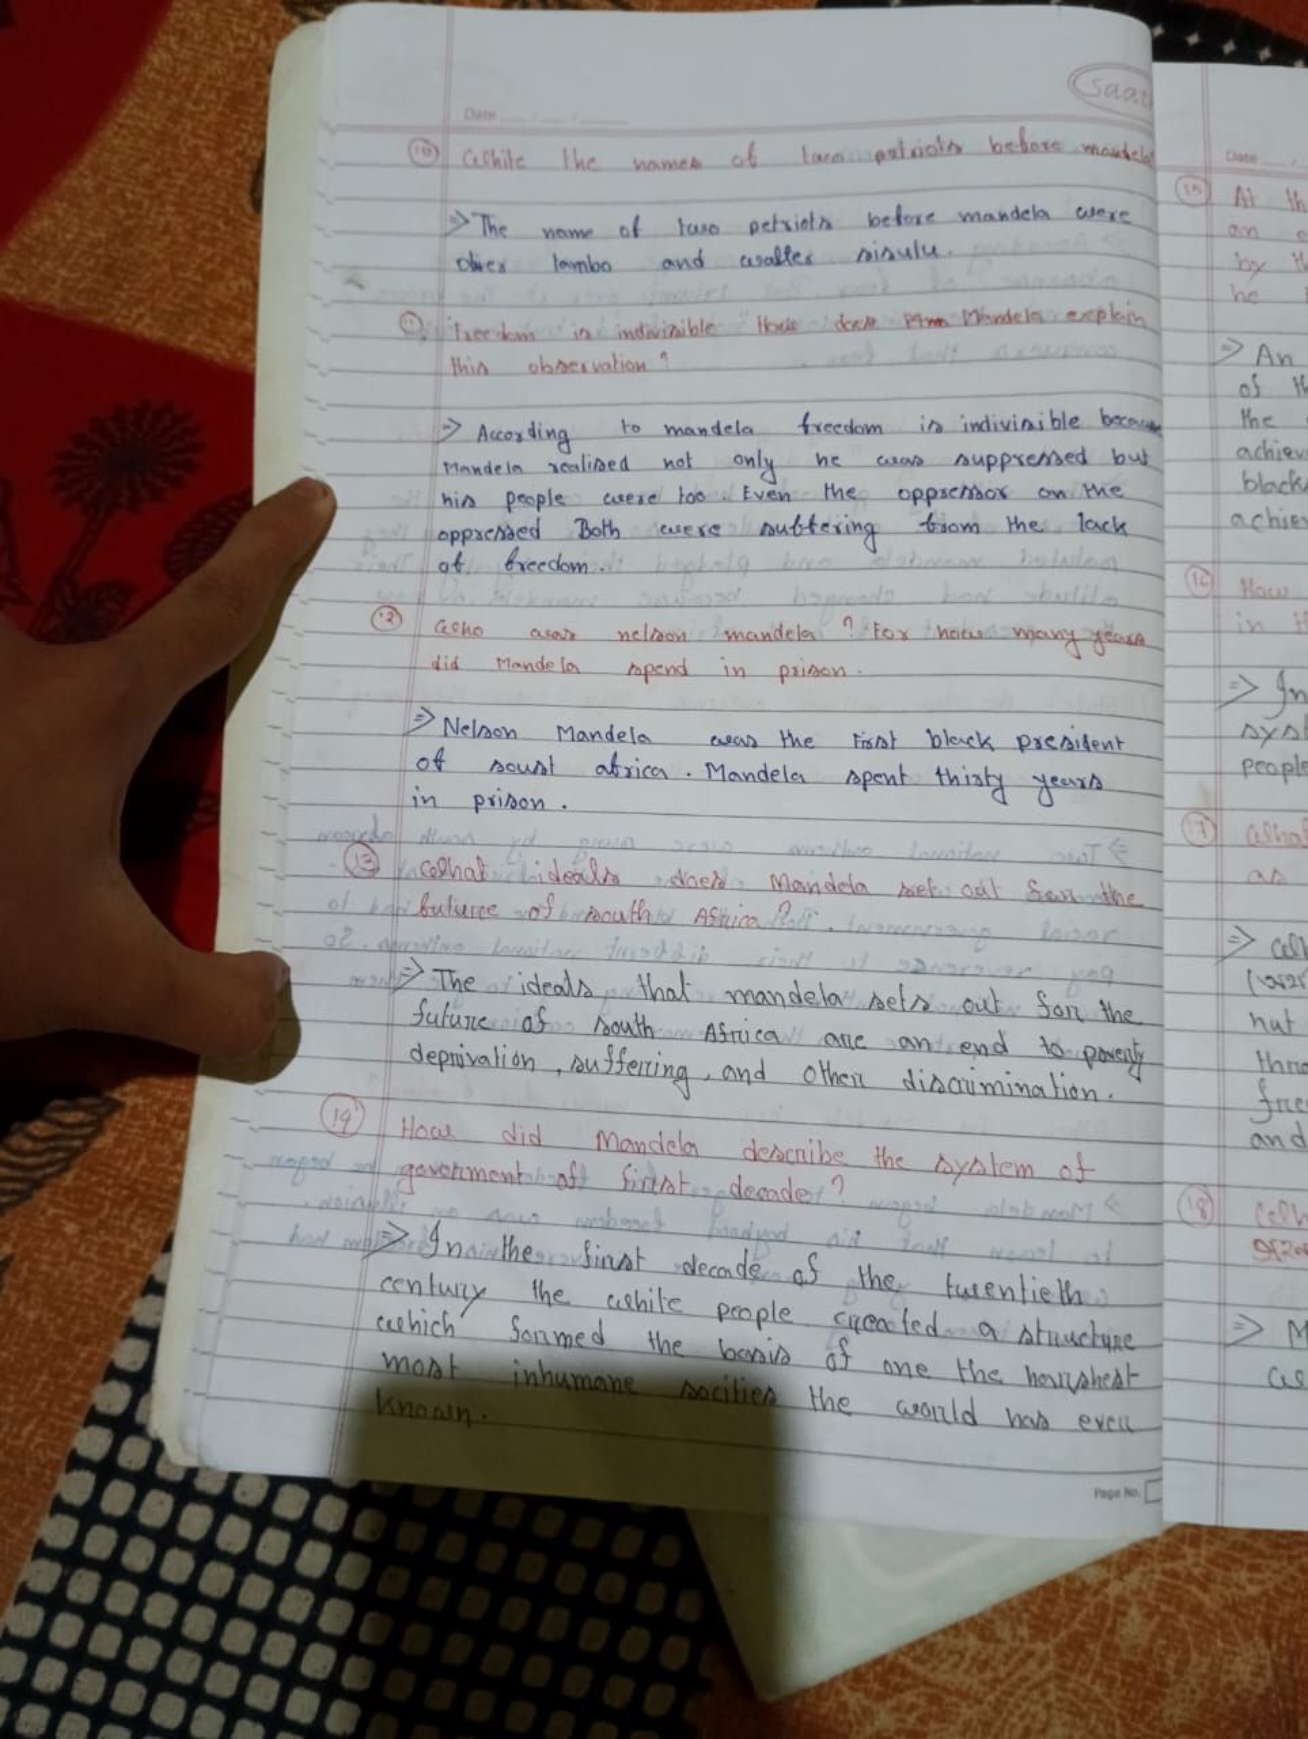 Saat
Date
10 White the names of two patriots before mandela
⇒ The name of two petriots before mandela were
oliver tambo and walter sisulu.
11 Freedom is indivisible How does Mandela explain
this observation ?
⇒ According to mandela freedom is indivisible because
Mandela realised not only he was suppressed but
his people were too. Even the oppressor on the
oppressed Both were suffering from the lack
of freedom.
12 Who was nelson mandela ? For how many years
did Mandela spend in prison.
⇒ Nelson Mandela was the First black president
of soust africa. Mandela spent thirty years
in prison.
13 What ideals does Mandela set out for the
future of south Africa ?
⇒ The ideals that mandela sets out for the
future of south Africa are an end to poverty
deprivation, suffering, and other discrimination.
14 How did Mandela describe the system of
government of first decade ?
⇒ In the first decade of the twentieth
century the white people created a structure
which formed the basis of one the harshest
most inhumane socities the world has ever
known.
Page No.
Date
15 At th
an
by th
he
⇒ An
of th
the
achiev
black
achiev
16 How
in t
⇒ In
syst
people
17 What
as
⇒
hut
thro
free
and
18
⇒ M